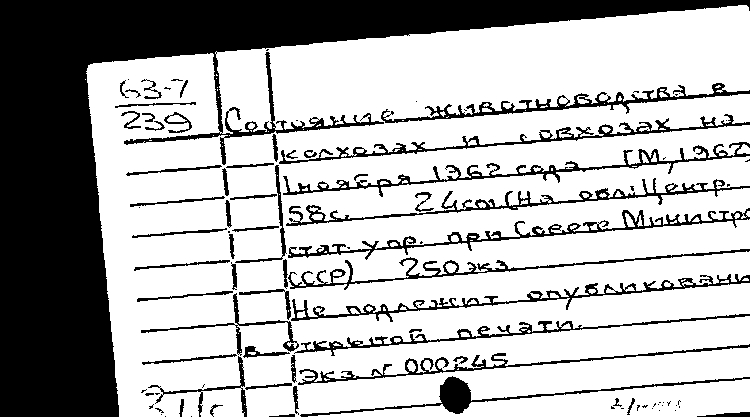 63-7
239
Состояние животноводства в
колхозах и совхозах на
1 ноября 1962 года. [М., 1962]
58с. 24см (На обл.: Центр.
стат. упр. при Совете Министро
СССР) 250 экз.
Не подлежит опубликовани
в открытой печати.
Экз N 000245